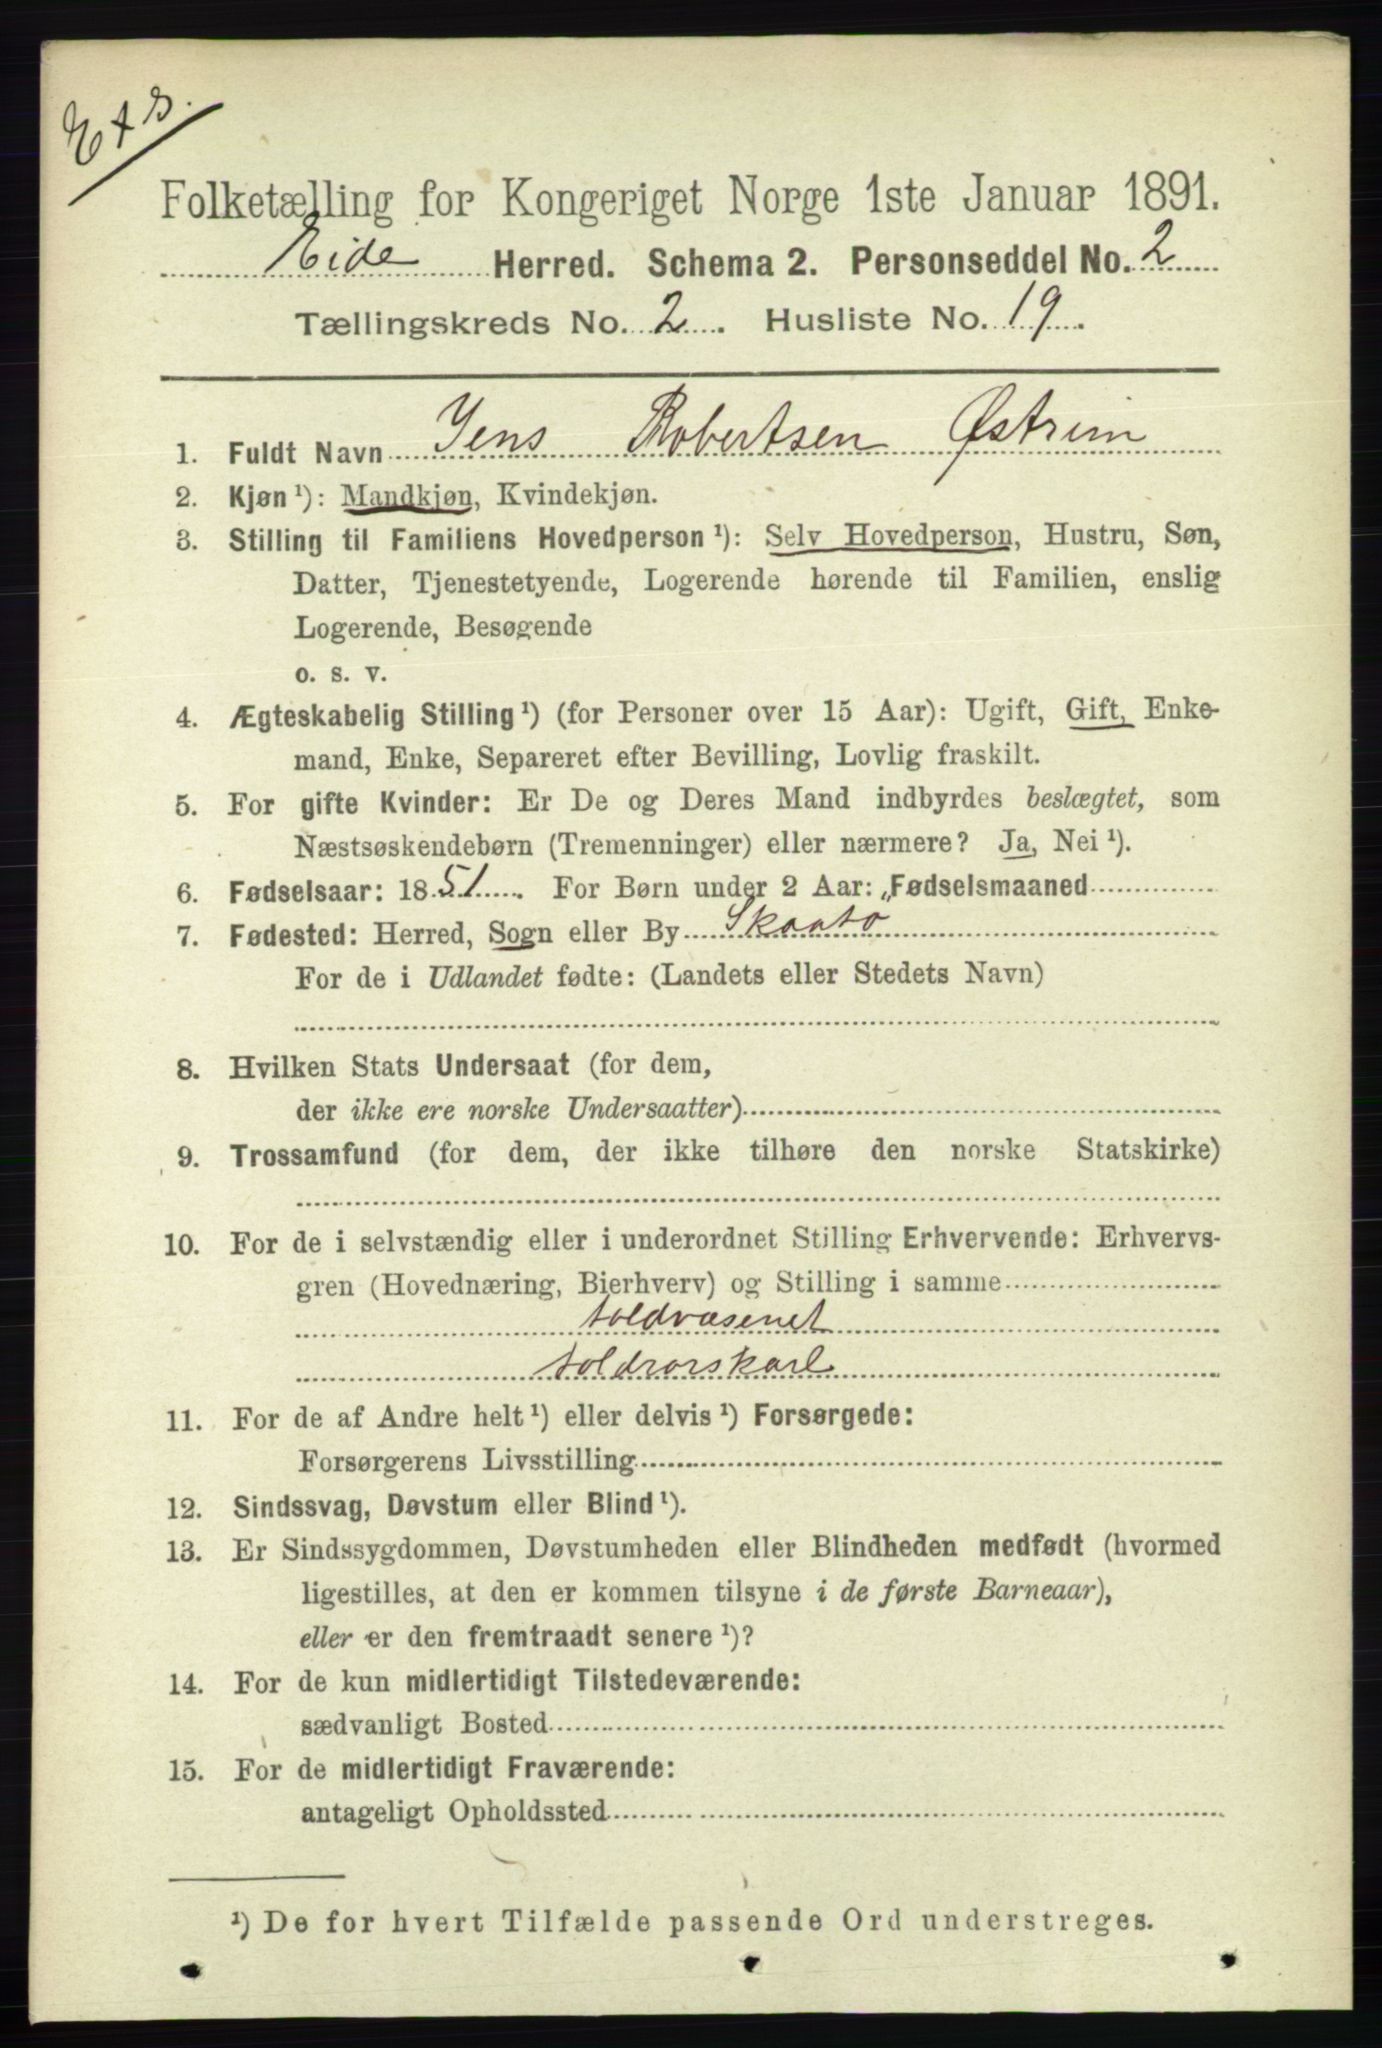 Exs.
Folketælling for Kongeriget Norge 1ste Januar 1891.
Eide Herred. Schema 2. Personseddel No. 2
Tællingskreds No. 2. Husliste No. 19.
1. Fuldt Navn Jens Robertsen Østrim
2. Kjøn ¹): Mandkjøn, Kvindekjøn.
3. Stilling til Familiens Hovedperson ¹): Selv Hovedperson, Hustru, Søn,
Datter, Tjenestetyende, Logerende hørende til Familien, enslig
Logerende, Besøgende
o. s. v.
4. Ægteskabelig Stilling ¹) (for Personer over 15 Aar): Ugift, Gift, Enke-
mand, Enke, Separeret efter Bevilling, Lovlig fraskilt.
5. For gifte Kvinder: Er De og Deres Mand indbyrdes beslægtet, som
Næstsøskendebørn (Tremenninger) eller nærmere? Ja, Nei ¹).
6. Fødselsaar: 1851. For Børn under 2 Aar: Fødselsmaaned
7. Fødested: Herred, Sogn eller By Skaatø
For de i Udlandet fødte: (Landets eller Stedets Navn)
8. Hvilken Stats Undersaat (for dem,
der ikke ere norske Undersaatter)
9. Trossamfund (for dem, der ikke tilhøre den norske Statskirke)
10. For de i selvstændig eller i underordnet Stilling Erhvervende: Erhvervs-
gren (Hovednæring, Bierhverv) og Stilling i samme
toldvæsenet
toldrorskarl
11. For de af Andre helt ¹) eller delvis ¹) Forsørgede:
Forsørgerens Livsstilling
12. Sindssvag, Døvstum eller Blind ¹).
13. Er Sindssygdommen, Døvstumheden eller Blindheden medfødt (hvormed
ligestilles, at den er kommen tilsyne i de første Barneaar),
eller er den fremtraadt senere ¹)?
14. For de kun midlertidigt Tilstedeværende:
sædvanligt Bosted
15. For de midlertidigt Fraværende:
antageligt Opholdssted
¹) De for hvert Tilfælde passende Ord understreges.